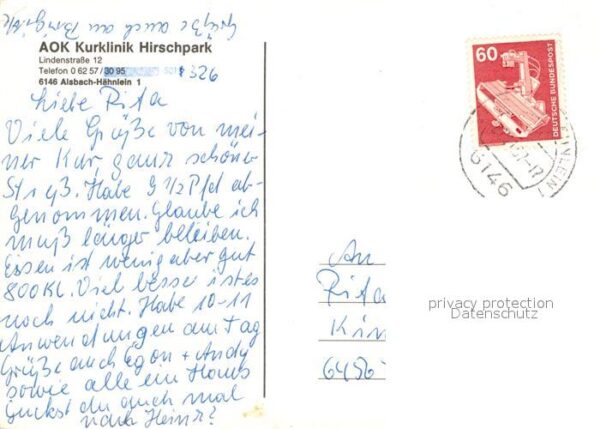 Grüße auch an
AOK Kurklinik Hirschpark
Lindenstraße 12
Telefon 0 62 57 / 30 95
6146 Alsbach-Hähnlein 1
326
Liebe Rita
Viele Grüße von mei-
ner Kur, ganz schöner
Streß. Habe 9 1/2 Pfd ab-
genommen. Glaube ich
muß länger beleiben.
Essen ist wenig aber gut
800 KC. Viel besser ist es
noch nicht. Habe 10-11
Anwendungen am Tag
Grüße auch Egon + Andy
sowie alle
Guckst du auch mal
nach Heinz?
60
DEUTSCHE BUNDESPOST
6146
An
Rita
Kin
6456
privacy protection
Datenschutz